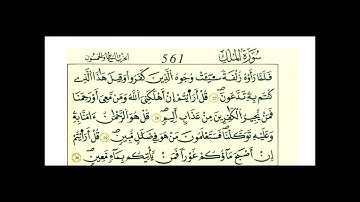 سُورَةُ المُلْكِ 561 الحزب السابع والخمسون
فَلَمَّا رَأَوْهُ زُلْفَةً سِيٓـَٔتْ وُجُوهُ الذِينَ كَفَرُوا وَقِيلَ هَٰذَا الذِے
كُنتُم بِهِۦ تَدَّعُونَ قُلَ اَرَٰٓيْتُمُۥٓ إِنَ اَهْلَكَنِيَ اَللَّهُ وَمَن مَّعِيَ أَوْ رَحِمَنَا
فَمَنْ يُّجِيرُ الْكٰفِرِينَ مِنْ عَذَابٍ اَلِيمٍ قُلْ هُوَ الرَّحْمَٰنُ ءَامَنَّا بِهِۦ
وَعَلَيْهِ تَوَكَّلْنَا فَسَتَعْلَمُونَ مَنْ هُوَ فِے ضَلَٰلٍ مُّبِينٍ قُلَ اَرَٰٓيْتُمُۥٓ
إِنَ اَصْبَحَ مَآؤُكُمْ غَوْرًا فَمَنْ يَّاتِيكُم بِمَآءٍ مَّعِينٍ